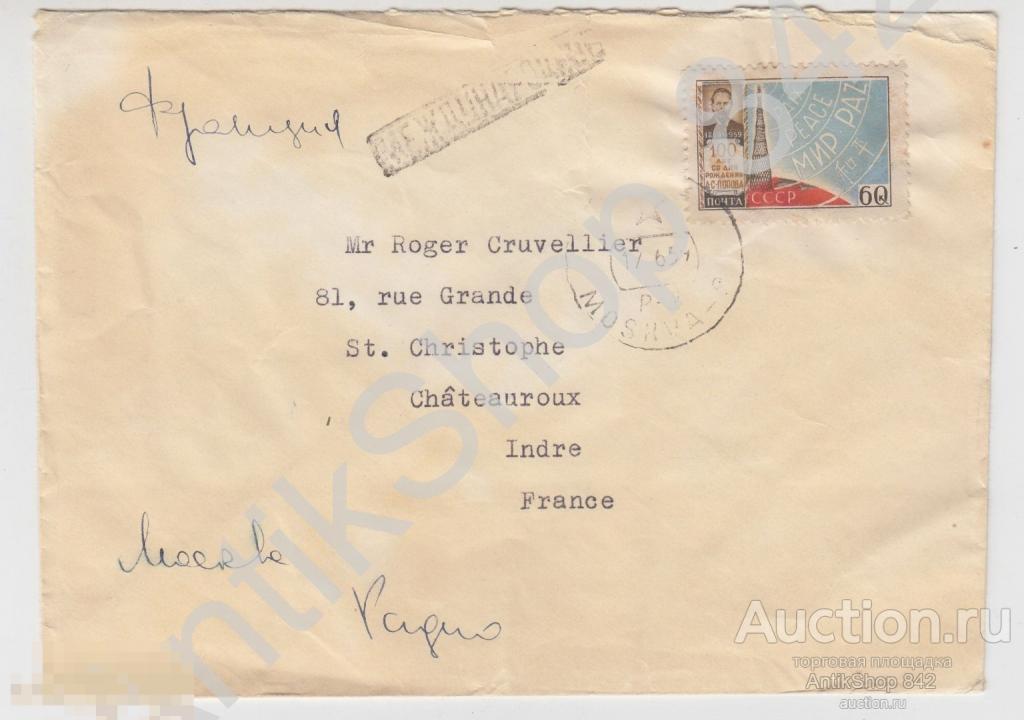 Франция
МЕЖДУНАРОДНОЕ
1859 1959
100
ЛЕТ
СО ДНЯ
РОЖДЕНИЯ
А·С·ПОПОВА
ПОЧТА
СССР
PEACE
МИР PAZ
60
Mr Roger Cruvellier
81, rue Grande
St. Christophe
Châteauroux
Indre
France
17 6 59
MOSKVA
Москва
Радио
AntikShop 842
Auction.ru
торговая площадка
AntikShop 842
auction.ru